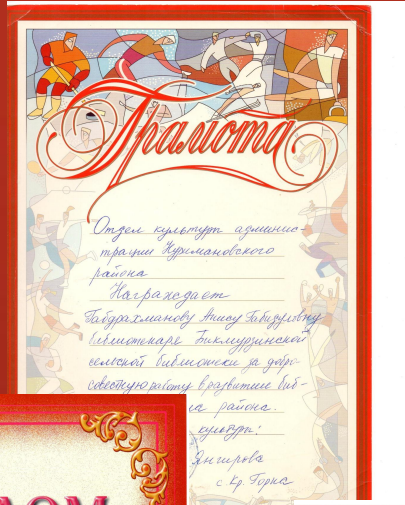 Грамота
Отдел культуры админис-
трации Нуримановского
района
Награждает
Габдрахманову Анису Габизуловну
библиотекаря Бикмурзинской
сельской библиотеки за добро-
совестную работу в развитие биб-
района.
культуры!
с. Кр. Горка
ЛОМ